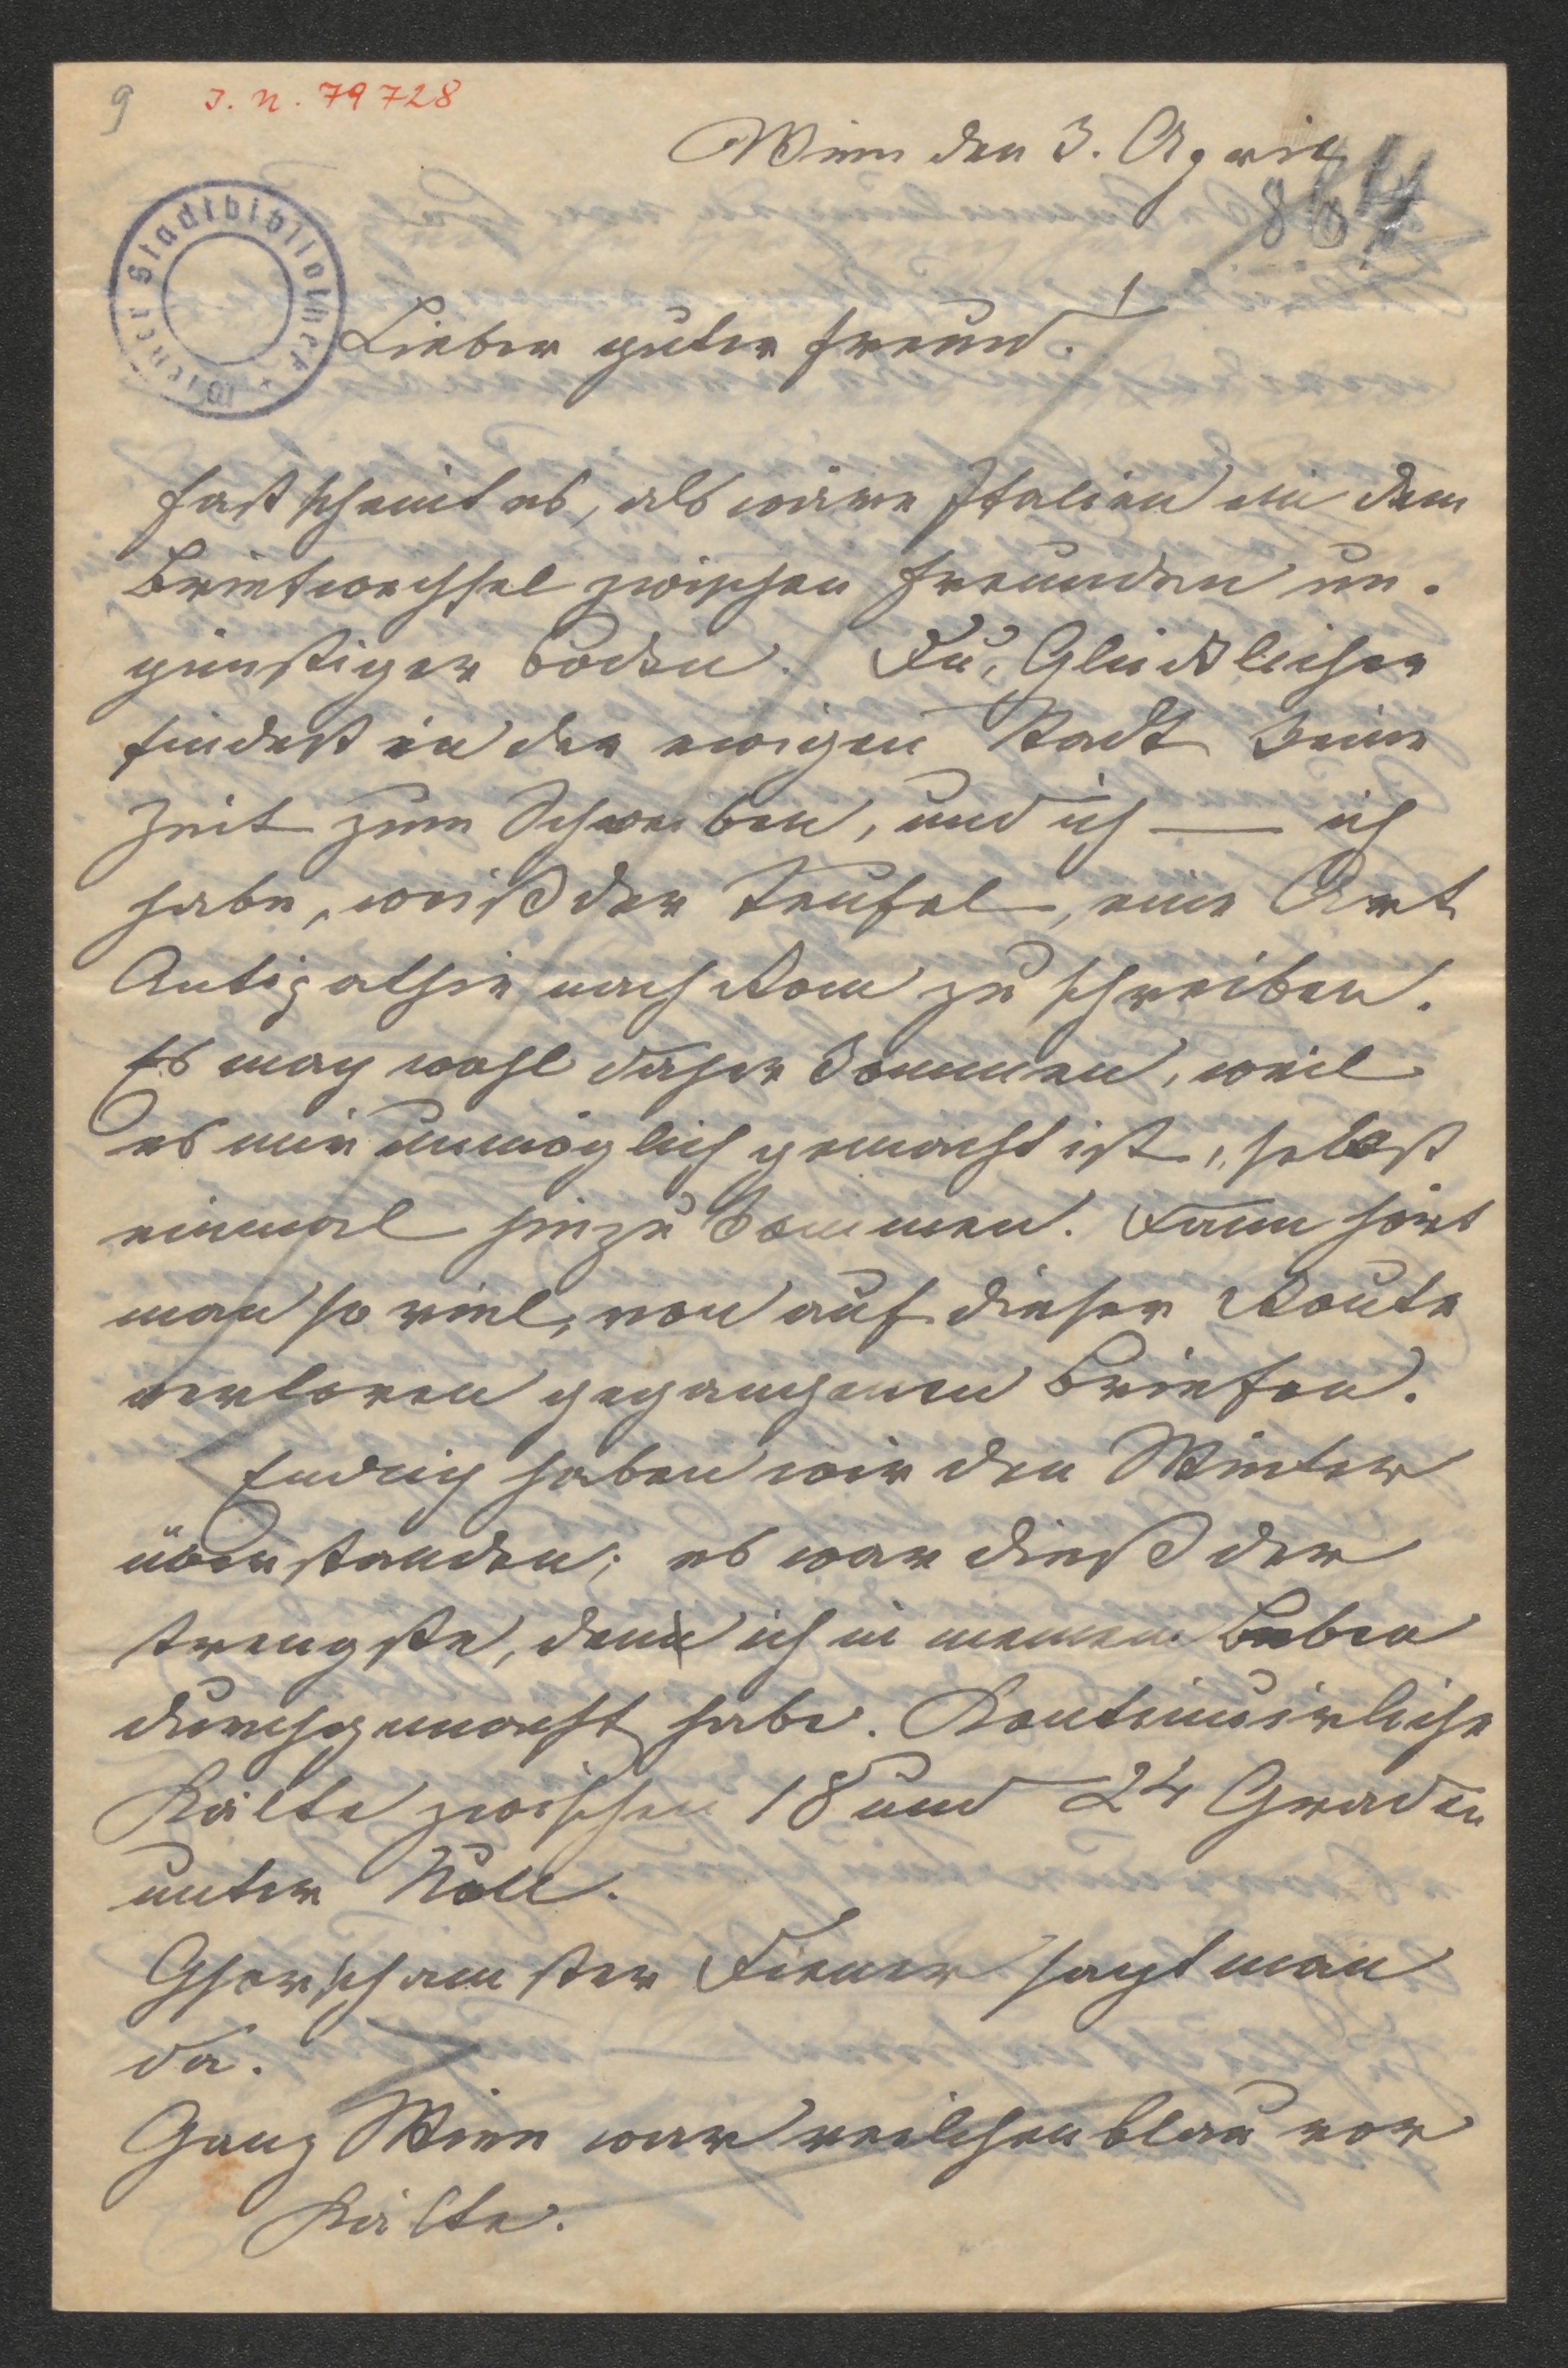 9 I. N. 79728
Wien den 3. April
Wiener Stadtbibliothek
Lieber guter Freund!
Fast scheint es, als wäre Italien ein dem
Briefwechsel zwischen Freunden un-
günstiger Boden. Du, Glücklicher
findest in der ewigen Stadt keine
Zeit zum Schreiben, und ich — ich
habe, weiß der Teufel, eine Art
Antipathie nach Rom zu schreiben.
Es mag wohl daher kommen, weil
es mir unmöglich gemacht ist, selbst
einmal hinzukommen. Dann hört
man so viel, von auf dieser Route
verloren gegangenen Briefen.
Endlich haben wir den Winter
überstanden; es war dieß der
strengste, den ich in meinem Leben
durchgemacht habe. Kontinuirliche
Kälte zwischen 18 und 24 Graden
unter Null.
Ghorschamster Diener sagt man
da.
Ganz Wien war veilchenblau vor
Kälte.